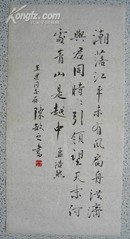 潮落江平未有風扁舟共濟
與君同時々引領望天末何
處青山是越中 孟浩然
同志 陳敏之書